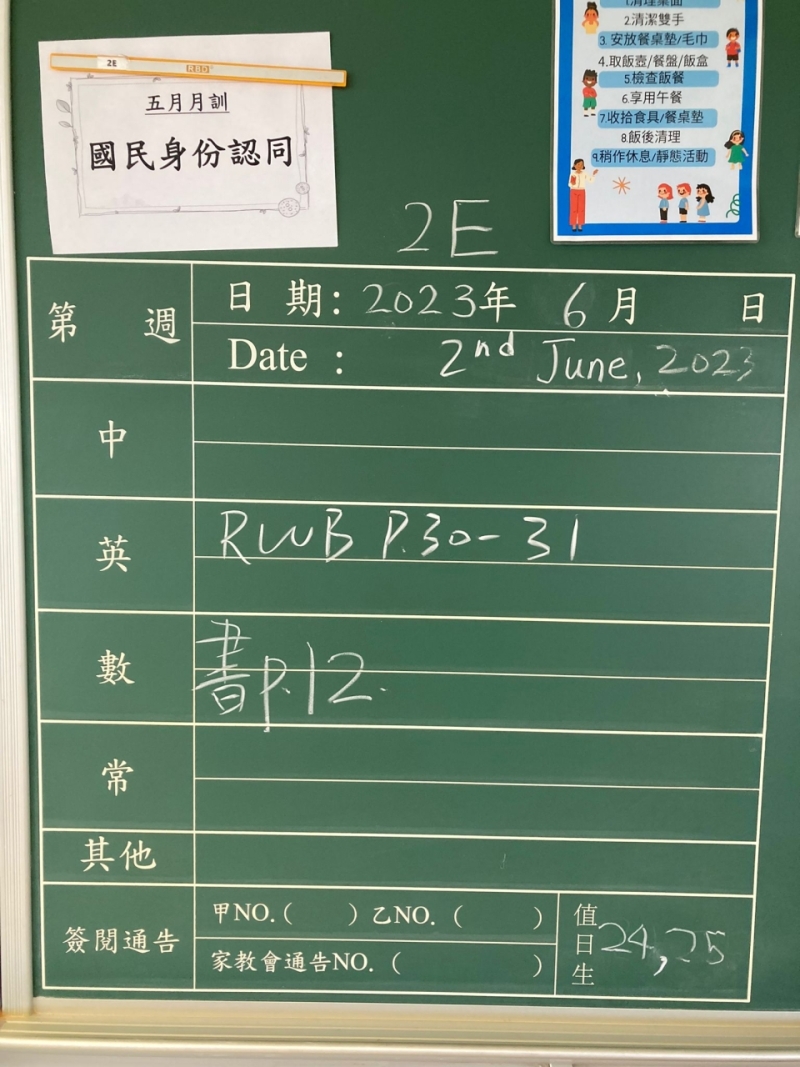 2E
RBD
五月月訓
國民身份認同
1.清理桌面
2.清潔雙手
3.安放餐桌墊/毛巾
4.取飯壺/餐盤/飯盒
5.檢查飯餐
6.享用午餐
7.收拾食具/餐桌墊
8.飯後清理
9.稍作休息/靜態活動
2E
第 週
日 期: 2023年 6月 日
Date : 2nd June, 2023
中
英
RWB P.30-31
數
書p.12.
常
其他
簽閱通告
甲NO.( )乙NO.( )
家教會通告NO.( )
值日生
24,25